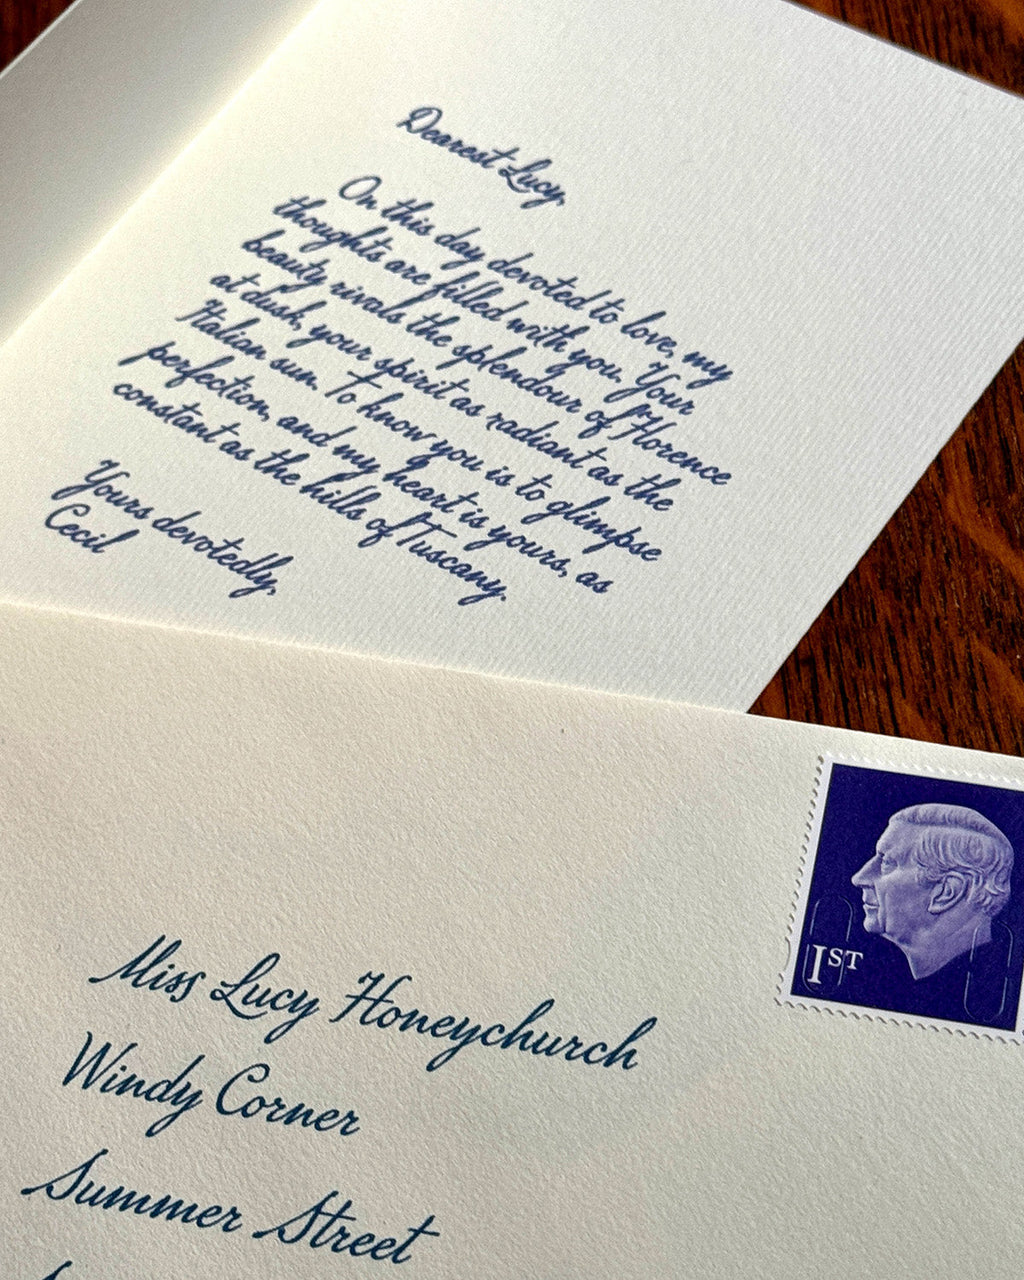 Dearest Lucy,
On this day devoted to love, my
thoughts are filled with you. Your
beauty rivals the splendour of Florence
at dusk, your spirit as radiant as the
Italian sun. To know you is to glimpse
perfection, and my heart is yours, as
constant as the hills of Tuscany.
Yours devotedly,
Cecil
1ST
Miss Lucy Honeychurch
Windy Corner
Summer Street